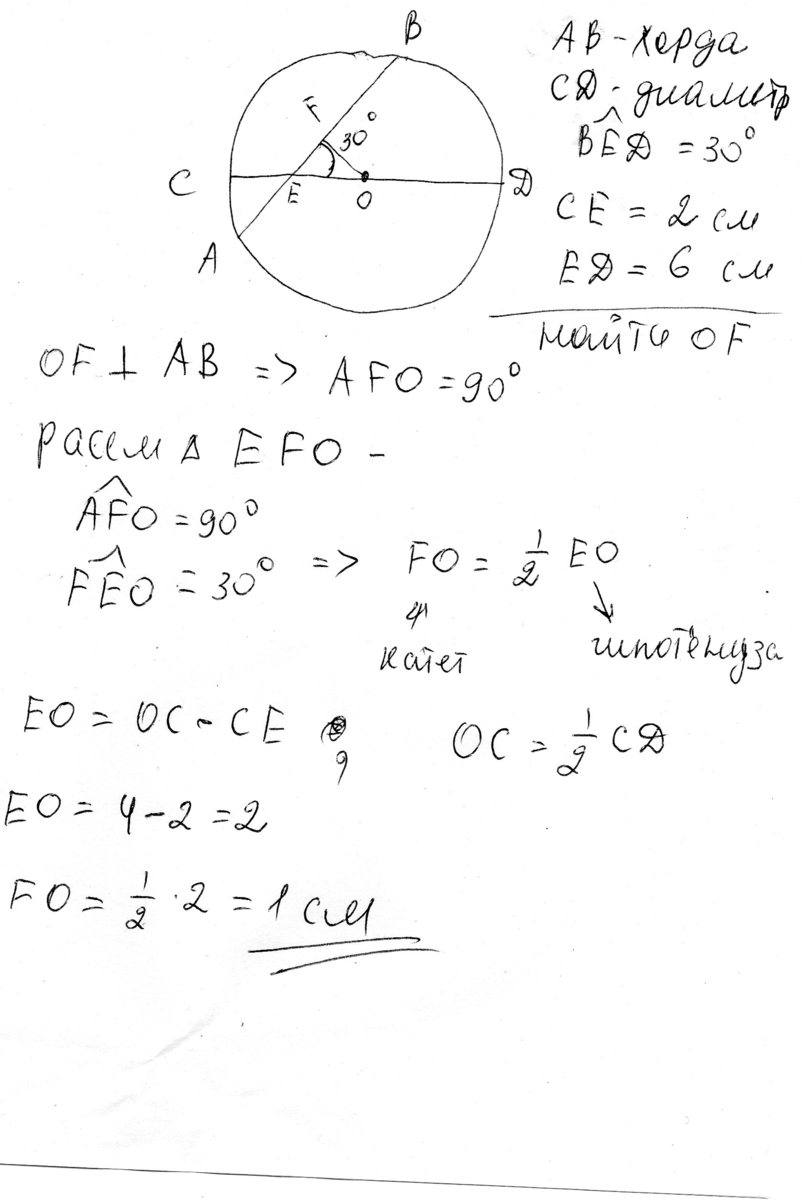 B
AB - хорда
CD - диаметр
F
30°
BED = 30°
C
E
O
D
CE = 2 см
A
ED = 6 см
найти OF
OF ⊥ AB => AFO = 90°
рассм Δ EFO -
AFO = 90°
FEO = 30° => FO = 1/2 EO
катет
гипотенуза
EO = OC - CE , OC = 1/2 CD
EO = 4 - 2 = 2
FO = 1/2 · 2 = 1 см